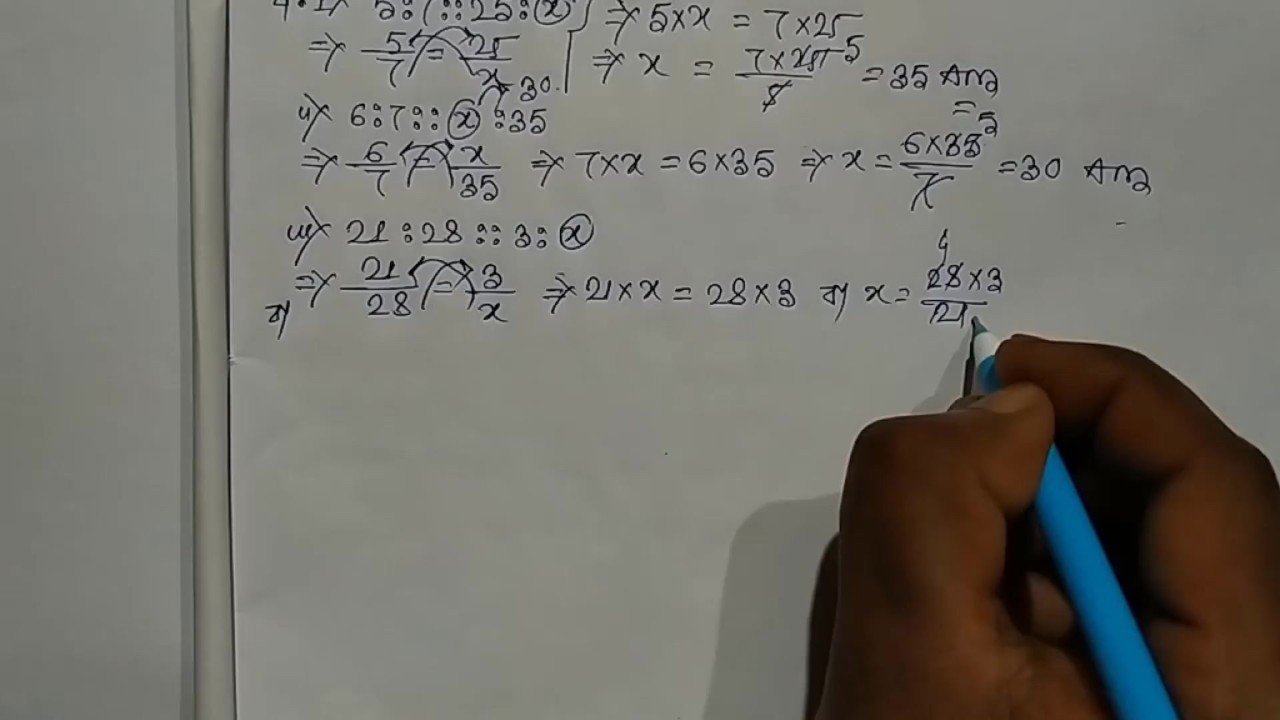 5:7::25:x ⇒ 5×x = 7×25
⇒ 5/7 = 25/x ⇒ x = 7×25 5/5 = 35 Ans
30
ii) 6:7::x:35
⇒ 6/7 = x/35 ⇒ 7×x = 6×35 ⇒ x = 6×35 5/7 = 30 Ans
iii) 21:28::3:x
⇒ 21/28 = 3/x ⇒ 21×x = 28×3 বা x = 4 28×3/21
বা